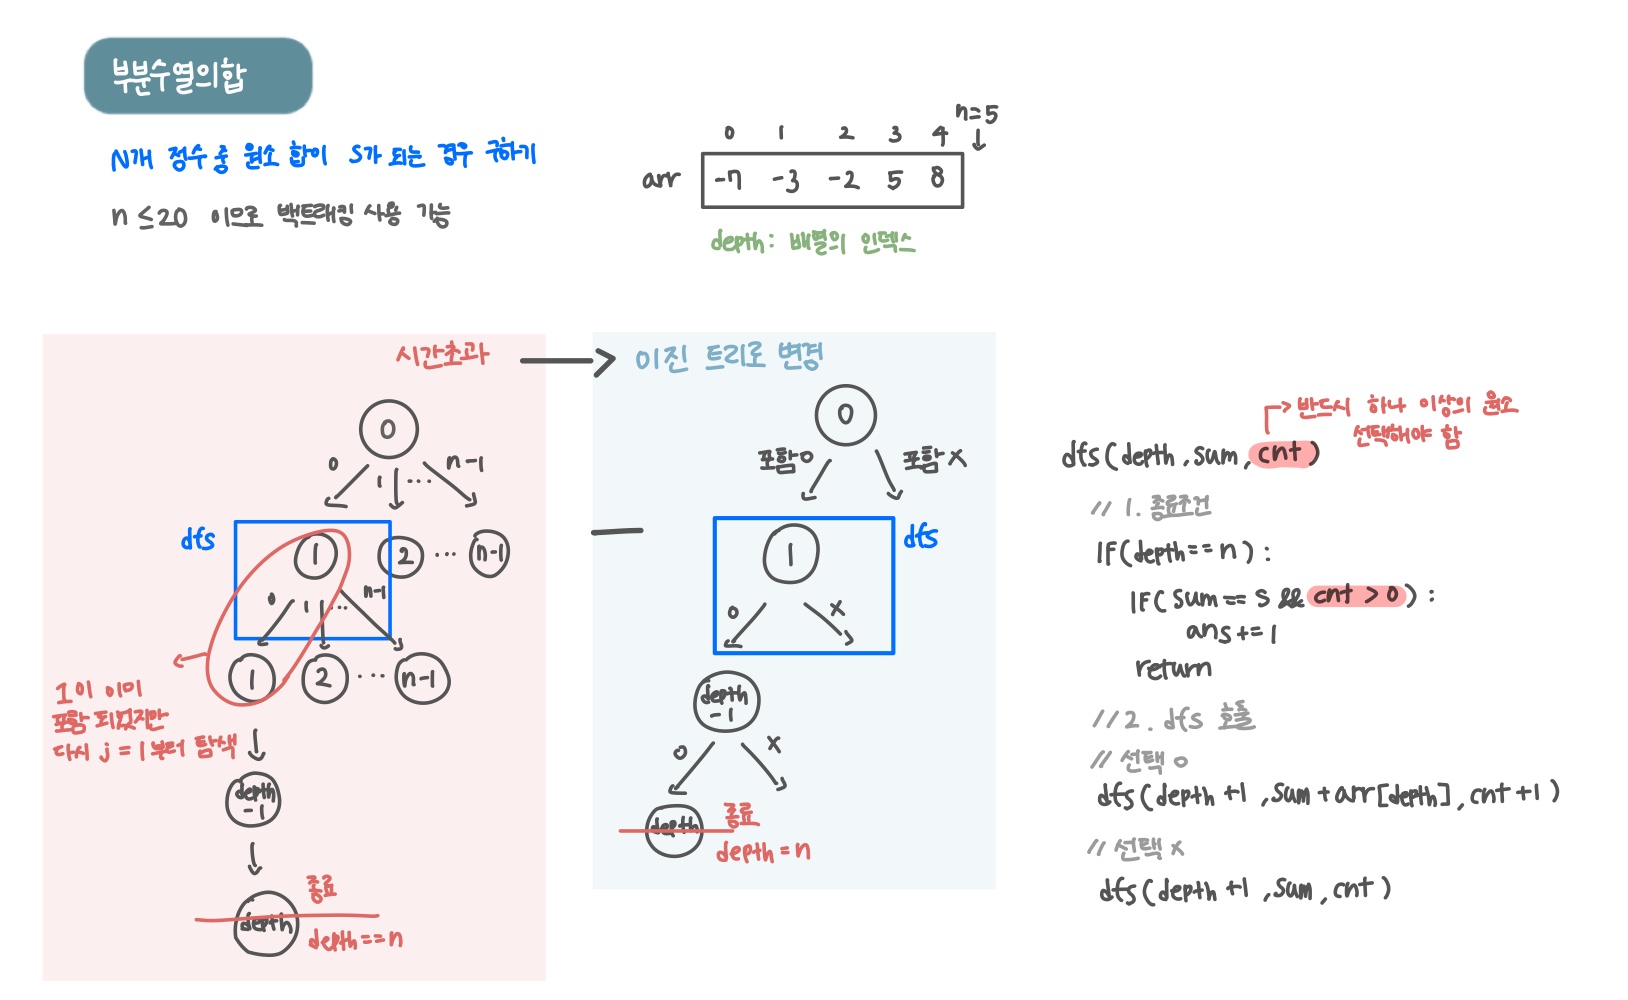 부분수열의합
N개 정수 중 원소 합이 S가 되는 경우 구하기
n ≤20 이므로 백트래킹 사용 가능
n=5
0 1 2 3 4
arr -7 -3 -2 5 8
depth: 배열의 인덱스
시간초과
0
0 1 ... n-1
dfs
1 2 ... n-1
0 1 ... n-1
1 2 ... n-1
1이 이미
포함 되었지만
다시 j = 1부터 탐색
depth
-1
종료
depth
depth==n
이진 트리로 변경
0
포함O 포함X
dfs
1
O X
depth
-1
O X
종료
depth
depth=n
반드시 하나 이상의 원소
선택해야 함
dfs(depth,sum,cnt)
// 1. 종료조건
IF(depth==n):
IF(sum==S && cnt>0):
ans+=1
return
//2. dfs 호출
// 선택 O
dfs(depth+1,sum+arr[depth],cnt+1)
// 선택 X
dfs(depth+1,sum,cnt)